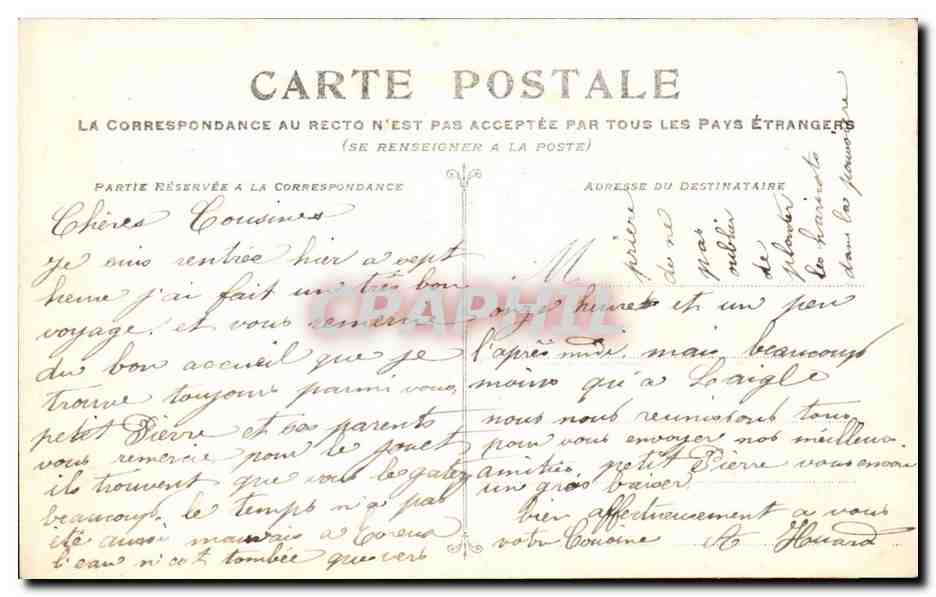 CARTE POSTALE
LA CORRESPONDANCE AU RECTO N'EST PAS ACCEPTÉE PAR TOUS LES PAYS ÉTRANGERS
(SE RENSEIGNER A LA POSTE)
PARTIE RÉSERVÉE A LA CORRESPONDANCE
Chères Cousines
Je suis rentrée hier a sept
heure j'ai fait un très bon
voyage. et vous remercie
du bon accueil que je
trouve toujours parmi vous,
petit Pierre et ses parents
vous remercie pour le jouet
ils trouvent que vous le gatez
beaucoup. le temps n'a pas
été aussi mauvais a
l'eau n'est tombée que vers
ADRESSE DU DESTINATAIRE
M
onze heures et un peu
l'après midi. mais beaucoup
moins qu'a Laigle
nous nous reunissons tous
pour vous envoyer nos meilleus.
amitiés. petit Pierre vous envoie
un gros baiser
bien affectueusement a vous
votre Cousine A Huard
prière
de ne
pas
oublier
de
planter
les haricots
dans la
CPAPHIL